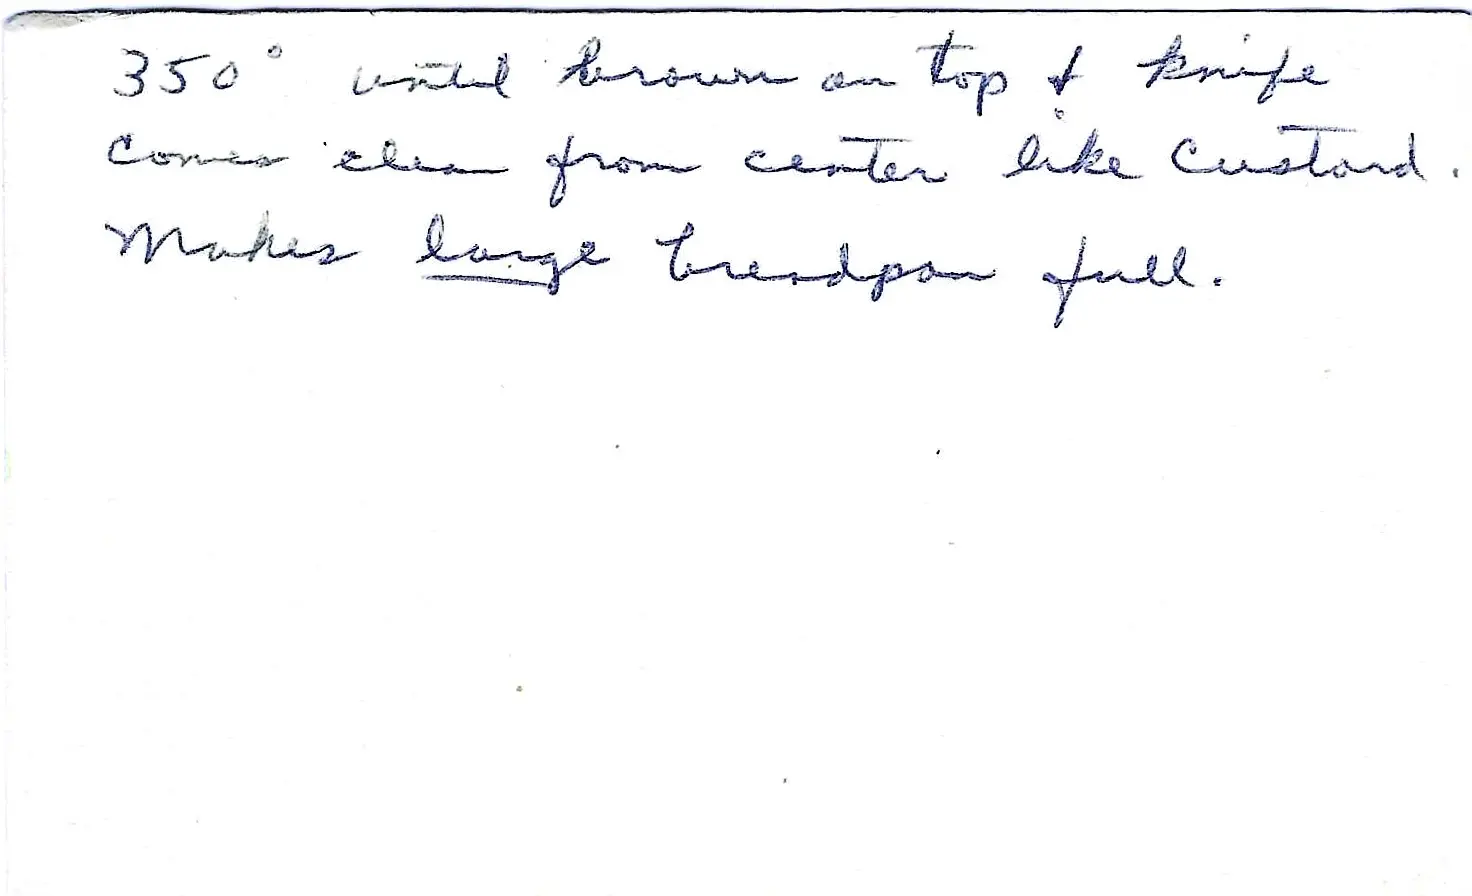 350° until brown on top & knife
comes clean from center like custard.
Makes large breadpan full.